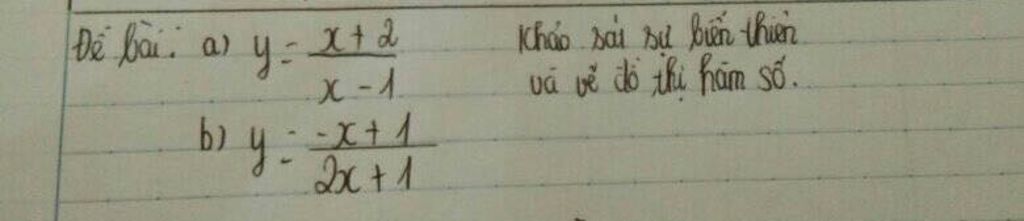 Đề bài: a) y = x + 2 / x - 1
Khảo sát sự biến thiên
và vẽ đồ thị hàm số.
b) y = -x + 1 / 2x + 1